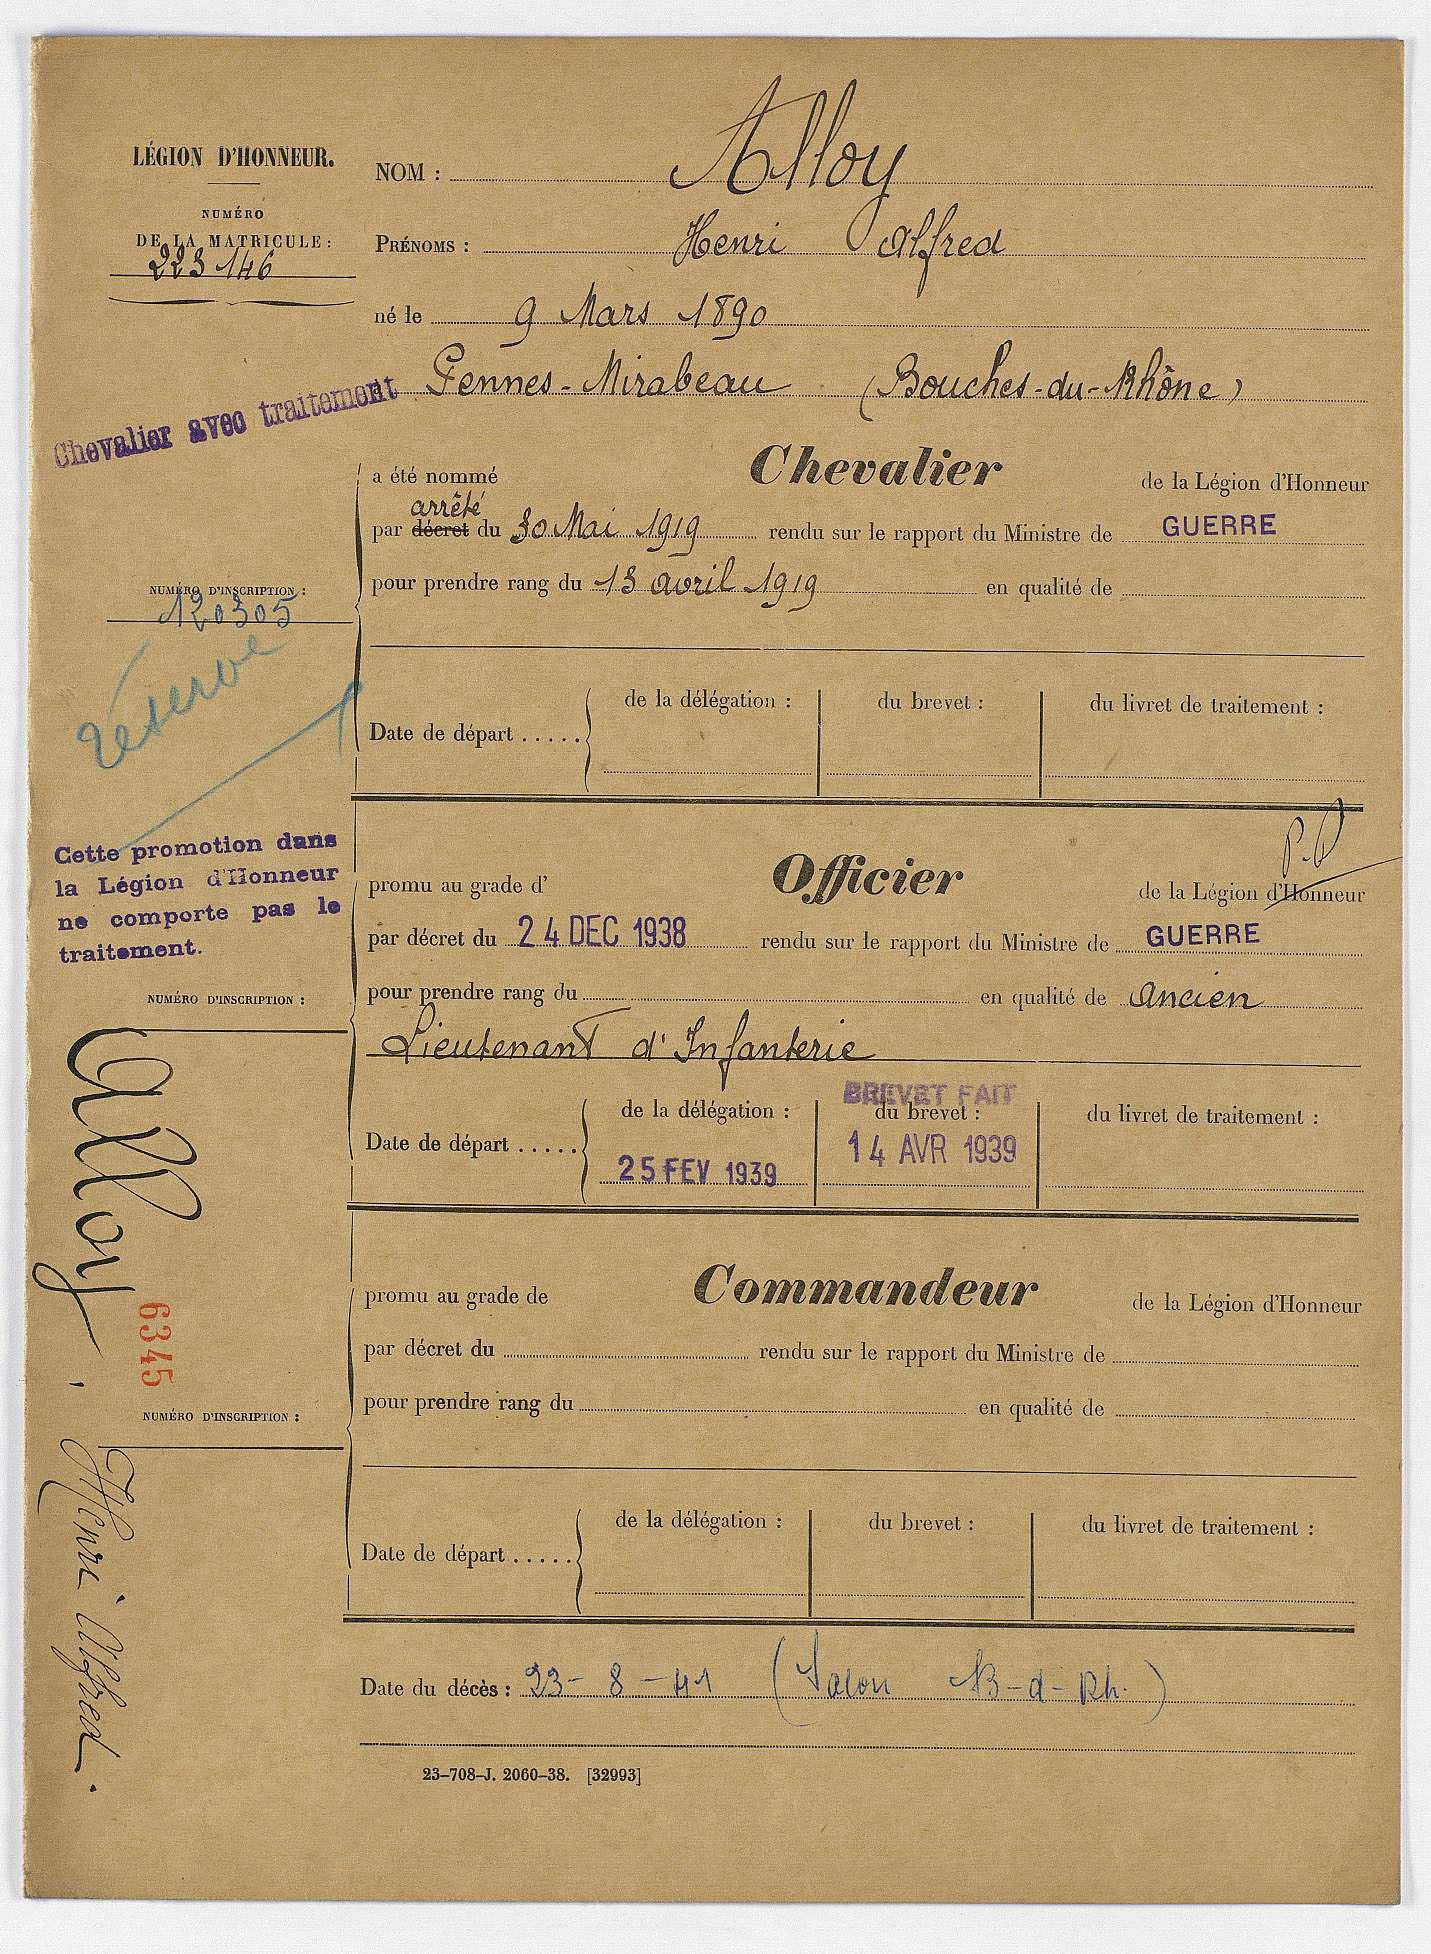 LÉGION D'HONNEUR.
NUMÉRO
DE LA MATRICULE :
223 146
NOM : Alloy
PRÉNOMS : Henri Alfred
né le 9 Mars 1890
Pennes-Mirabeau (Bouches-du-Rhône)
Chevalier avec traitement
a été nommé Chevalier de la Légion d'Honneur
arrêté
par décret du 30 Mai 1919 rendu sur le rapport du Ministre de GUERRE
pour prendre rang du 13 avril 1919 en qualité de
NUMÉRO D'INSCRIPTION :
120305
réserve
de la délégation : du brevet : du livret de traitement :
Date de départ .....
Cette promotion dans
la Légion d'Honneur
ne comporte pas le
traitement.
promu au grade d' Officier de la Légion d'Honneur
par décret du 24 DEC 1938 rendu sur le rapport du Ministre de GUERRE
pour prendre rang du en qualité de Ancien
NUMÉRO D'INSCRIPTION :
Lieutenant d'Infanterie
BREVET FAIT
de la délégation : du brevet : du livret de traitement :
Date de départ ..... 25 FEV 1939 14 AVR 1939
promu au grade de Commandeur de la Légion d'Honneur
par décret du rendu sur le rapport du Ministre de
pour prendre rang du en qualité de
NUMÉRO D'INSCRIPTION :
de la délégation : du brevet : du livret de traitement :
Date de départ .....
Date du décès : 23-8-41 (Salon B-d-Rh.)
23-708-J. 2060-38. [32993]
Alloy, Henri Alfred.
6345